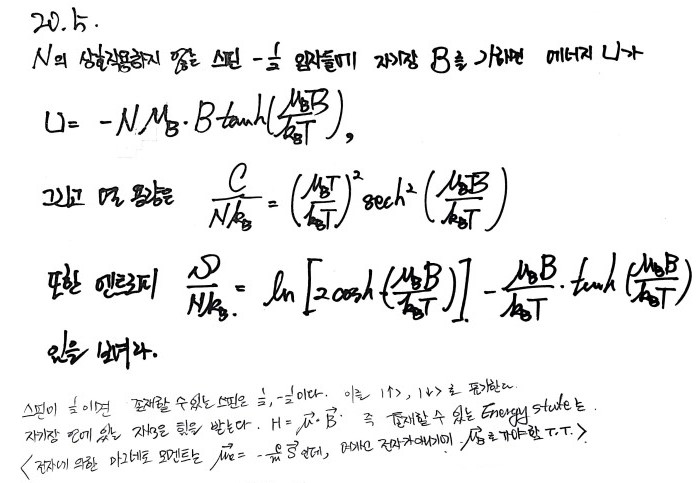 20.5.
N의 상호작용하지 않는 스핀 -1/2 입자들에 자기장 B를 가하면 에너지 U가
U= -Nμ_B·B tanh(μ_B B/k_B T),
그리고 열 용량은 C/Nk_B = (μ_B T/k_B T)² sech² (μ_B B/k_B T)
또한 엔트로피 S/Nk_B = ln[2cosh(μ_B B/k_B T)] - μ_B B/k_B T · tanh(μ_B B/k_B T)
임을 보여라.
스핀이 1/2이면 존재할 수 있는 스핀은 1/2, -1/2이다. 이를 |↑>, |↓>로 표기한다.
자기장 안에 있는 자석은 힘을 받는다. H = μ⃗·B⃗ 즉 존재할 수 있는 Energy state는
<전자에 의한 마그네토 모멘트는 μ⃗e = -e/m S⃗ 인데, 여기선 전자가 μ⃗_B로 가야함 T.T.>